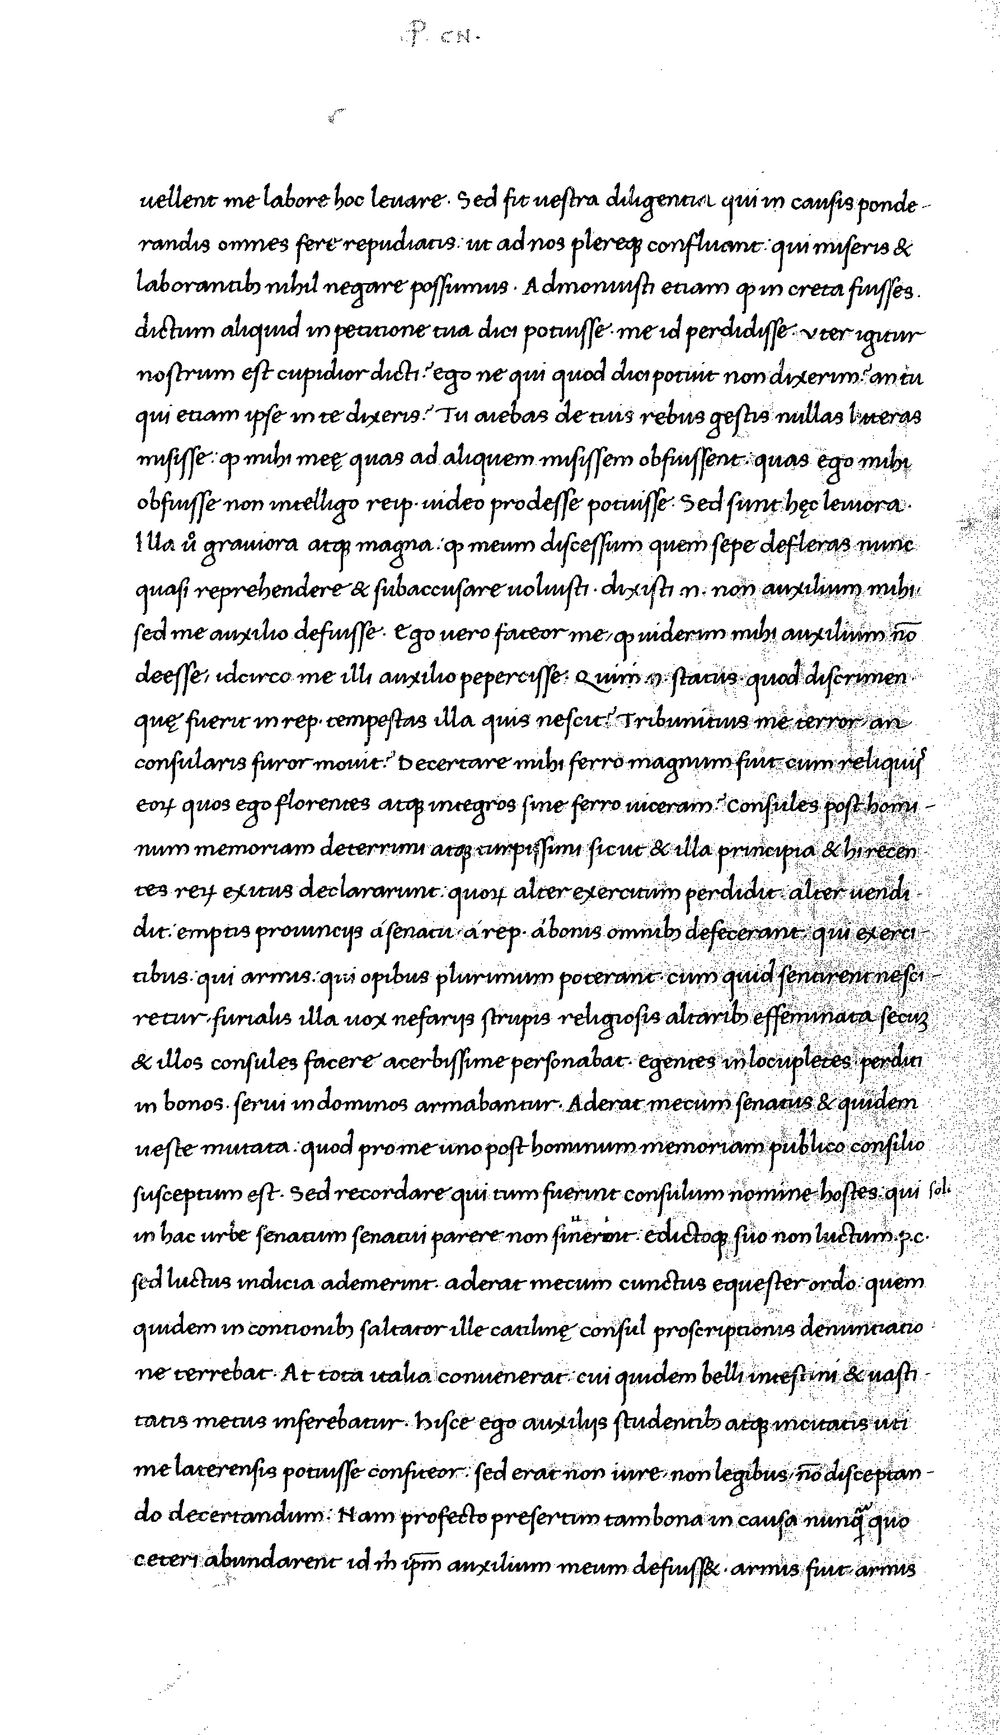 P. CN.
uellent me labore hoc leuare. Sed fit uestra diligentia qui in causis ponde-
randis omnes fere repudiatis: ut ad nos pleręq; confluant: qui miseris &
laborantib; nihil negare possumus. Admonuisti etiam ꝙ in creta fuisses.
dictum aliquid in petitione tua dici potuisse. me id perdidisse. Vter igitur
nostrum est cupidior dicti? ego ne qui quod dici potuit non dixerim? an tu
qui etiam ipse in te dixeris? Tu aiebas de tuis rebus gestis nullas litteras
misisse: ꝙ mihi meę quas ad aliquem misissem obfuissent. quas ego mihi
obfuisse non intelligo reip. uideo prodesse potuisse. Sed sunt hęc leuiora.
Illa ů grauiora atq; magna. ꝙ meum discessum quem sepe defleras nunc
quasi reprehendere & subaccusare uoluisti. dixisti n. non auxilium mihi,
sed me auxilio defuisse. Ego uero fateor me, ꝙ uiderim mihi auxilium nō
deesse, idcirco me illi auxilio pepercisse. Qui n. status quod discrimen
quę fuerit in rep. tempestas illa quis nescit? Tribunitius me terror an
consularis furor mouit? Decertare mihi ferro magnum fuit cum reliquijs
eoꝝ quos ego florentes atq; integros sine ferro uiceram? Consules post homi-
num memoriam deterrimi atq; turpissimi sicut & illa principia & hi recen
tes reꝝ exitus declararunt. quoꝝ alter exercitum perdidit. alter uendi-
dit. emptis prouincijs á senatu. á rep. á bonis omnib; defecerant. qui exerci-
tibus. qui armis. qui opibus plurimum poterant. cum quid sentirent nesci-
retur. furialis illa uox nefarijs strupis religiosis altarib; effeminata secuȝ
& illos consules facere acerbissime personabat. egentes in locupletes. perditi
in bonos. serui in dominos armabantur. Aderat mecum senatus & quidem
ueste mutata: quod pro me uno post hominum memoriam publico consilio
susceptum est. Sed recordare qui tum fuerint consulum nomine hostes. qui soli
in hac urbe senatum senatui parere non siuerint. edictoq; suo non luctum. p.c.
sed luctus indicia ademerint. aderat mecum cunctus equester ordo. quem
quidem in contionib; saltator ille catilinę consul proscriptionis denuntiatio
ne terrebat. At tota italia conuenerat. cui quidem belli intestini & uasti-
tatis metus inferebatur. Hisce ego auxilijs studentib; atq; incitatis uti
me laterensis potuisse confiteor. sed erat non iure. non legibus. nō disceptan-
do decertandum. Nam profecto presertim tam bona in causa nunq̃ quo
ceteri abundarent id m̄ ipm̄ auxilium meum defuiss&. armis fuit. armis